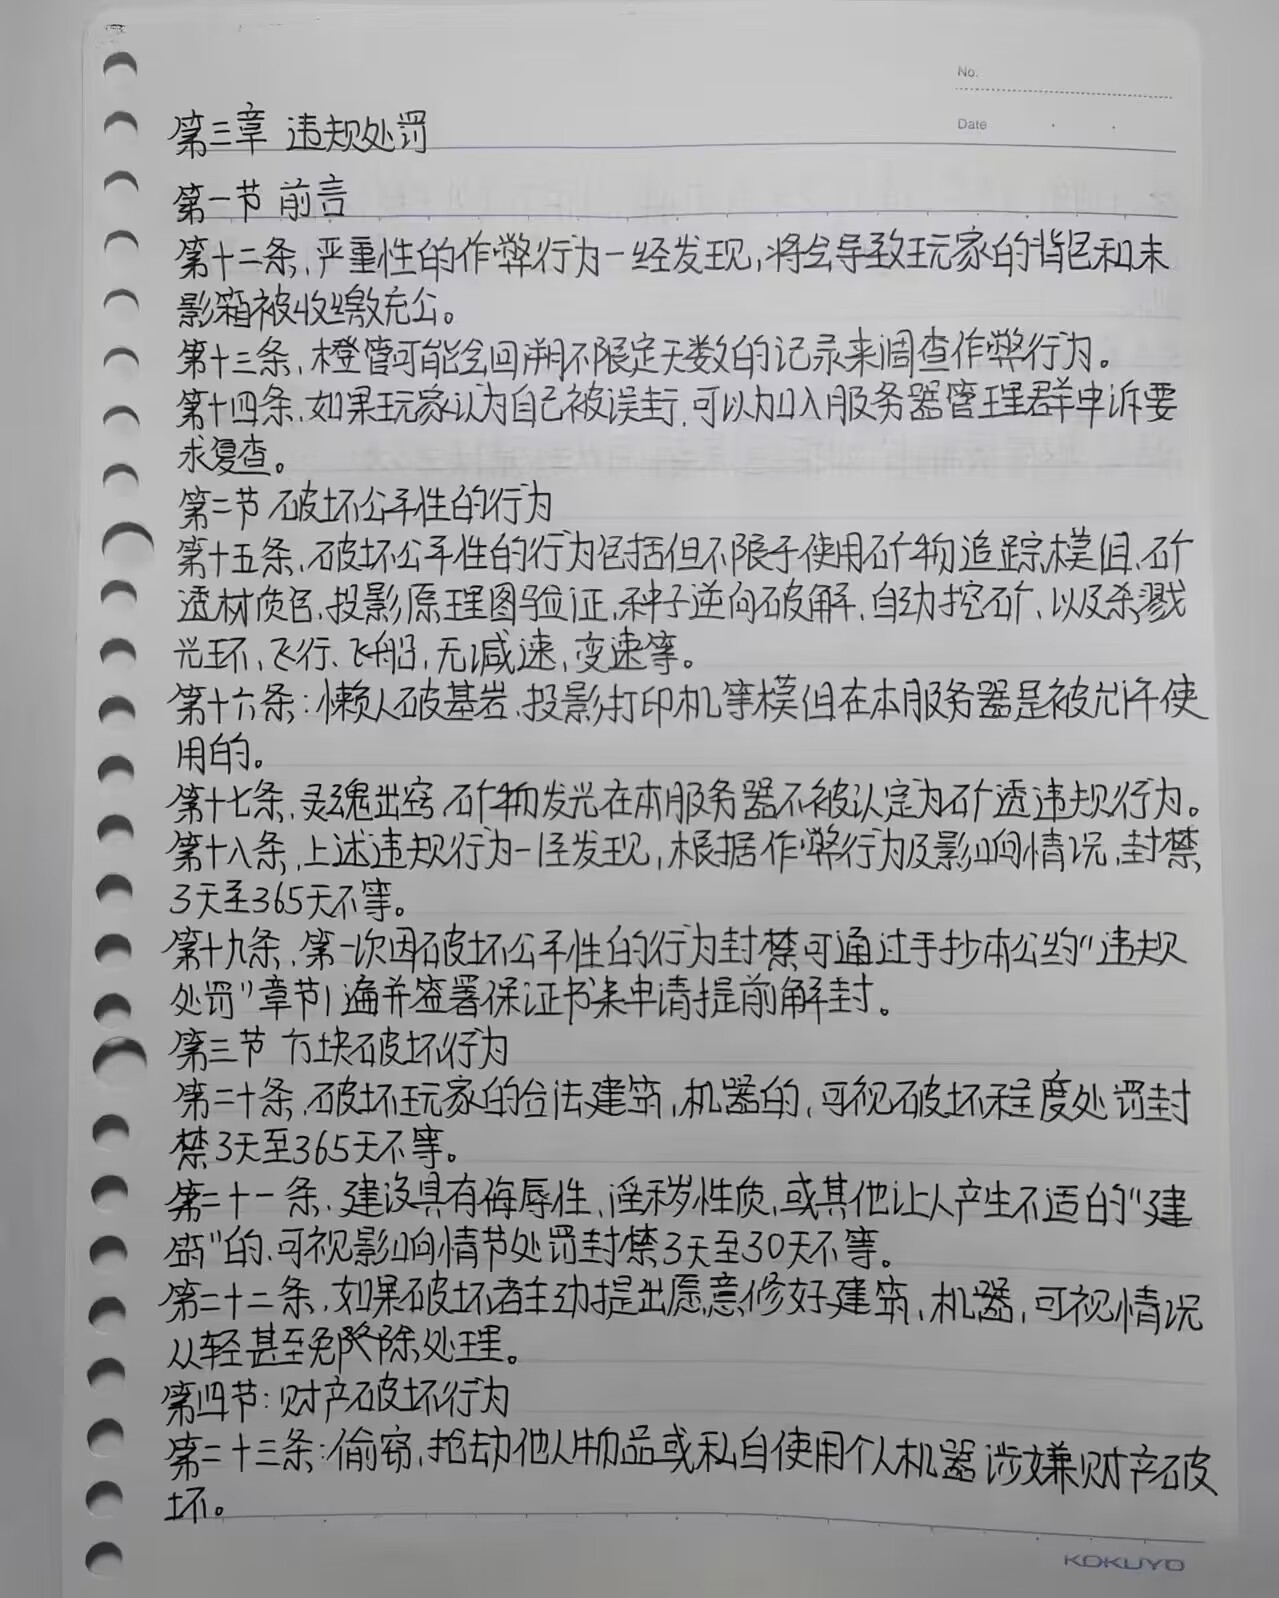 No.
Date
第三章 违规处罚
第一节 前言
第十二条,严重性的作弊行为一经发现,将会导致玩家的背包和末
影箱被收缴充公。
第十三条,橙管可能会回溯不限定天数的记录来调查作弊行为。
第十四条,如果玩家认为自己被误封,可以加入服务器管理群申诉要
求复查。
第二节 破坏公平性的行为
第十五条,破坏公平性的行为包括但不限于使用矿物追踪模组,矿
透材质包,投影原理图验证,种子逆向破解,自动挖矿,以及杀戮
光环,飞行,飞船,无减速,变速等。
第十六条:懒人破基岩,投影打印机等模组在本服务器是被允许使
用的。
第十七条,灵魂出窍,矿物发光在本服务器不被认定为矿透违规行为。
第十八条,上述违规行为一经发现,根据作弊行为及影响情况,封禁
3天至365天不等。
第十九条,第一次因破坏公平性的行为封禁可通过手抄本公约"违规
处罚"章节1遍并签署保证书来申请提前解封。
第三节 方块破坏行为
第二十条,破坏玩家的合法建筑,机器的,可视破坏程度处罚封
禁3天至365天不等。
第二十一条,建设具有侮辱性,淫秽性质,或其他让人产生不适的"建
筑"的,可视影响情节处罚封禁3天至30天不等。
第二十二条,如果破坏者主动提出愿意修好建筑,机器,可视情况
从轻甚至免除处理。
第四节:财产破坏行为
第二十三条:偷窃,抢劫他人物品或私自使用个人机器涉嫌财产破
坏。
KOKUYO